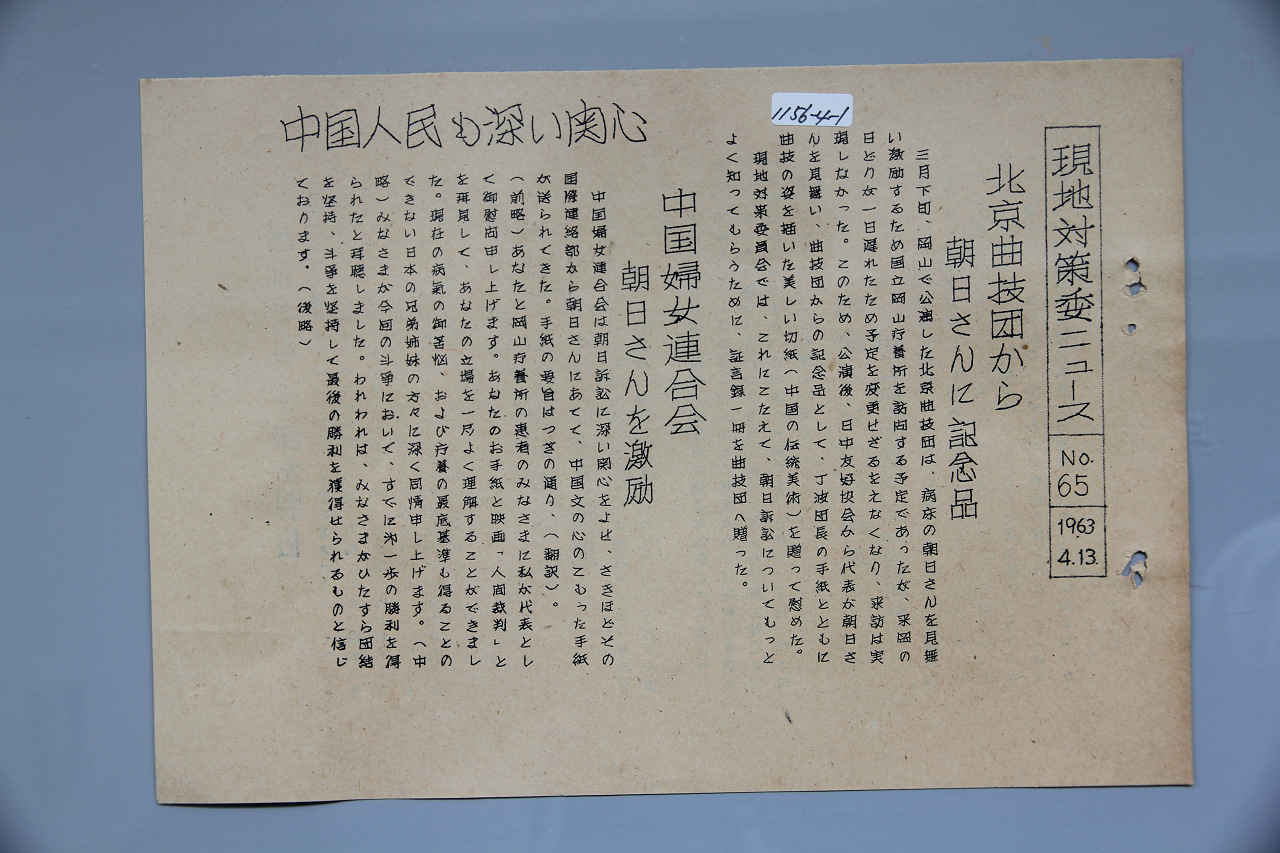 1156-4-1
現地対策委ニュース
No.65
1963
4.13.
中国人民も深い関心
北京曲技団から
朝日さんに記念品
三月下旬、岡山で公演した北京曲技団は、病床の朝日さんを見舞
い激励するため国立岡山疗養所を訪问する予定であったが、来岡の
日どりが一日遅れたため予定を変更せざるをえなくなり、来訪は実
現しなかった。このため、公演後、日中友好协会から代表が朝日さ
んを見舞い、曲技団からの記念品として、丁波団長の手紙とともに
曲技の姿を描いた美しい切紙(中国の伝統美術)を贈って慰めた。
現地対策委員会では、これにこたえて、朝日訴訟についてもっと
よく知ってもらうために、証言録一冊を曲技団へ贈った。
中国婦女連合会
朝日さんを激励
中国婦女連合会は朝日訴訟に深い関心をよせ、さきほどその
国際連絡部から朝日さんにあてて、中国文の心のこもった手紙
が送られてきた。手紙の要旨はつぎの通り、(翻訳)。
(前略)あなたと岡山疗養所の患者のみなさまに私が代表とし
て御慰问申し上げます。あなたのお手紙と映画「人间裁判」と
を拝見して、あなたの立場を一层よく理解することができまし
た。現在の病氣の御苦悩、および疗養の最底基準も得ることの
できない日本の兄弟姉妹の方々に深く同情申し上げます。(中
略)みなさまが今回の斗争において、すでに㐧一歩の勝利を得
られたと拝聴しました。われわれは、みなさまがひたすら団結
を坚持、斗争を坚持して最後の勝利を獲得せられるものと信じ
ております。(後略)